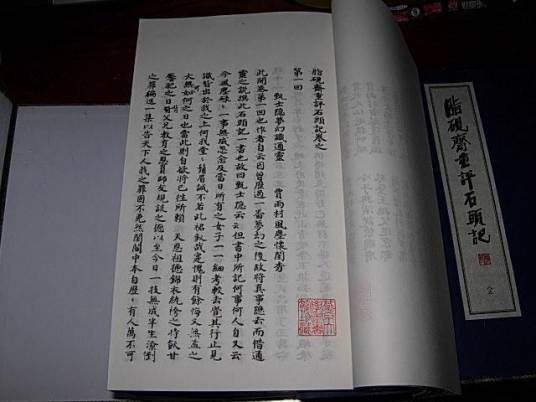 脂硯齋重評石頭記卷之
第一回
甄士隱夢幻識通靈　賈雨村風塵懷閨秀
此開卷第一回也作者自云因曾歷過一番夢幻之後故將真事隱去而借通
靈之說撰此石頭記一書也故曰甄士隱云云但書中所記何事何人自又云
今風塵碌〻一事無成忽念及當日所有之女子一一細考較去覺其行止見
識皆出於我之上何我堂〻鬚眉誠不若此裙釵哉實愧則有餘悔又無益之
大無如何之日也當此則自欲將已往所賴　天恩祖德錦衣紈袴之時飫甘
饜肥之日背父兄教育之恩負師友規談之德以至今日一技無成半生潦倒
之罪編述一集以告天下人我之罪固不免然閨閣中本自歷〻有人萬不可
脂硯齋重評石頭記
2